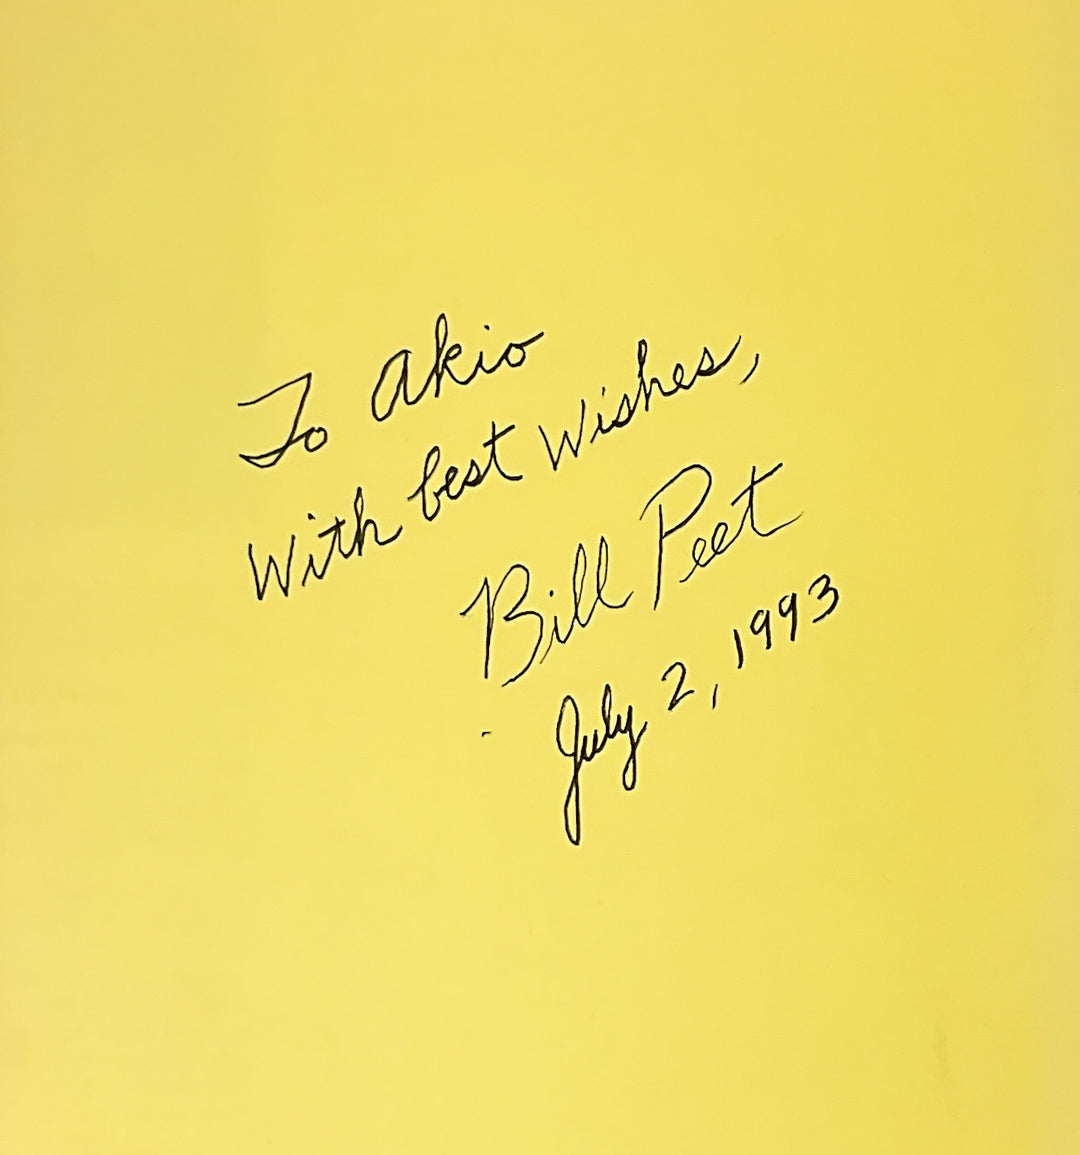 To Akio
With best Wishes,
Bill Peet
July 2, 1993